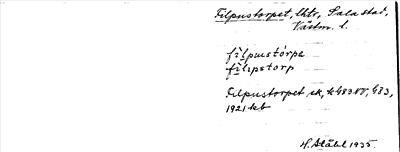 Filpustorpet, lhte, Sala stad,
Västm. l.
filpustórpə
filipstorp
Filpustorpet ek, k 483 NV, 483,
1921 kb
H. Ståhl 1935.